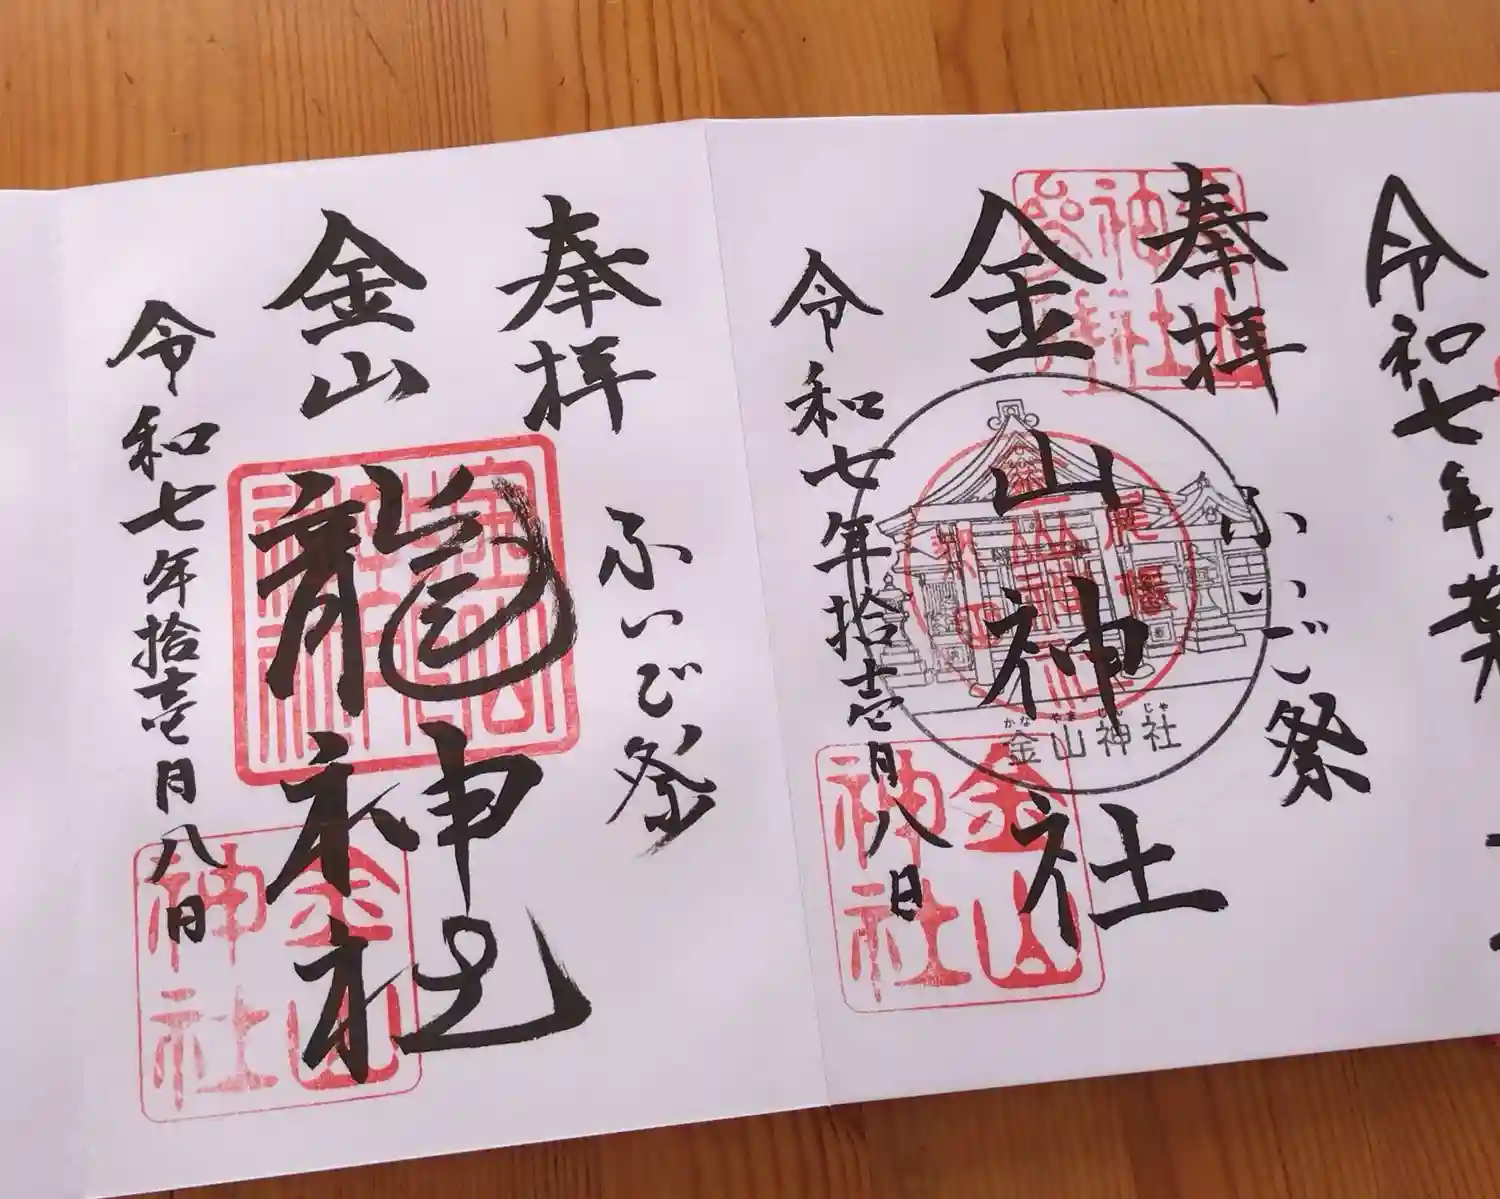 令和七年
奉拝
ふいご祭
金山神社
令和七年拾壱月八日
金山神社
かなやまじんじゃ
金山神社
奉拝
ふいご祭
金山龍神社
令和七年拾壱月八日
金山神社